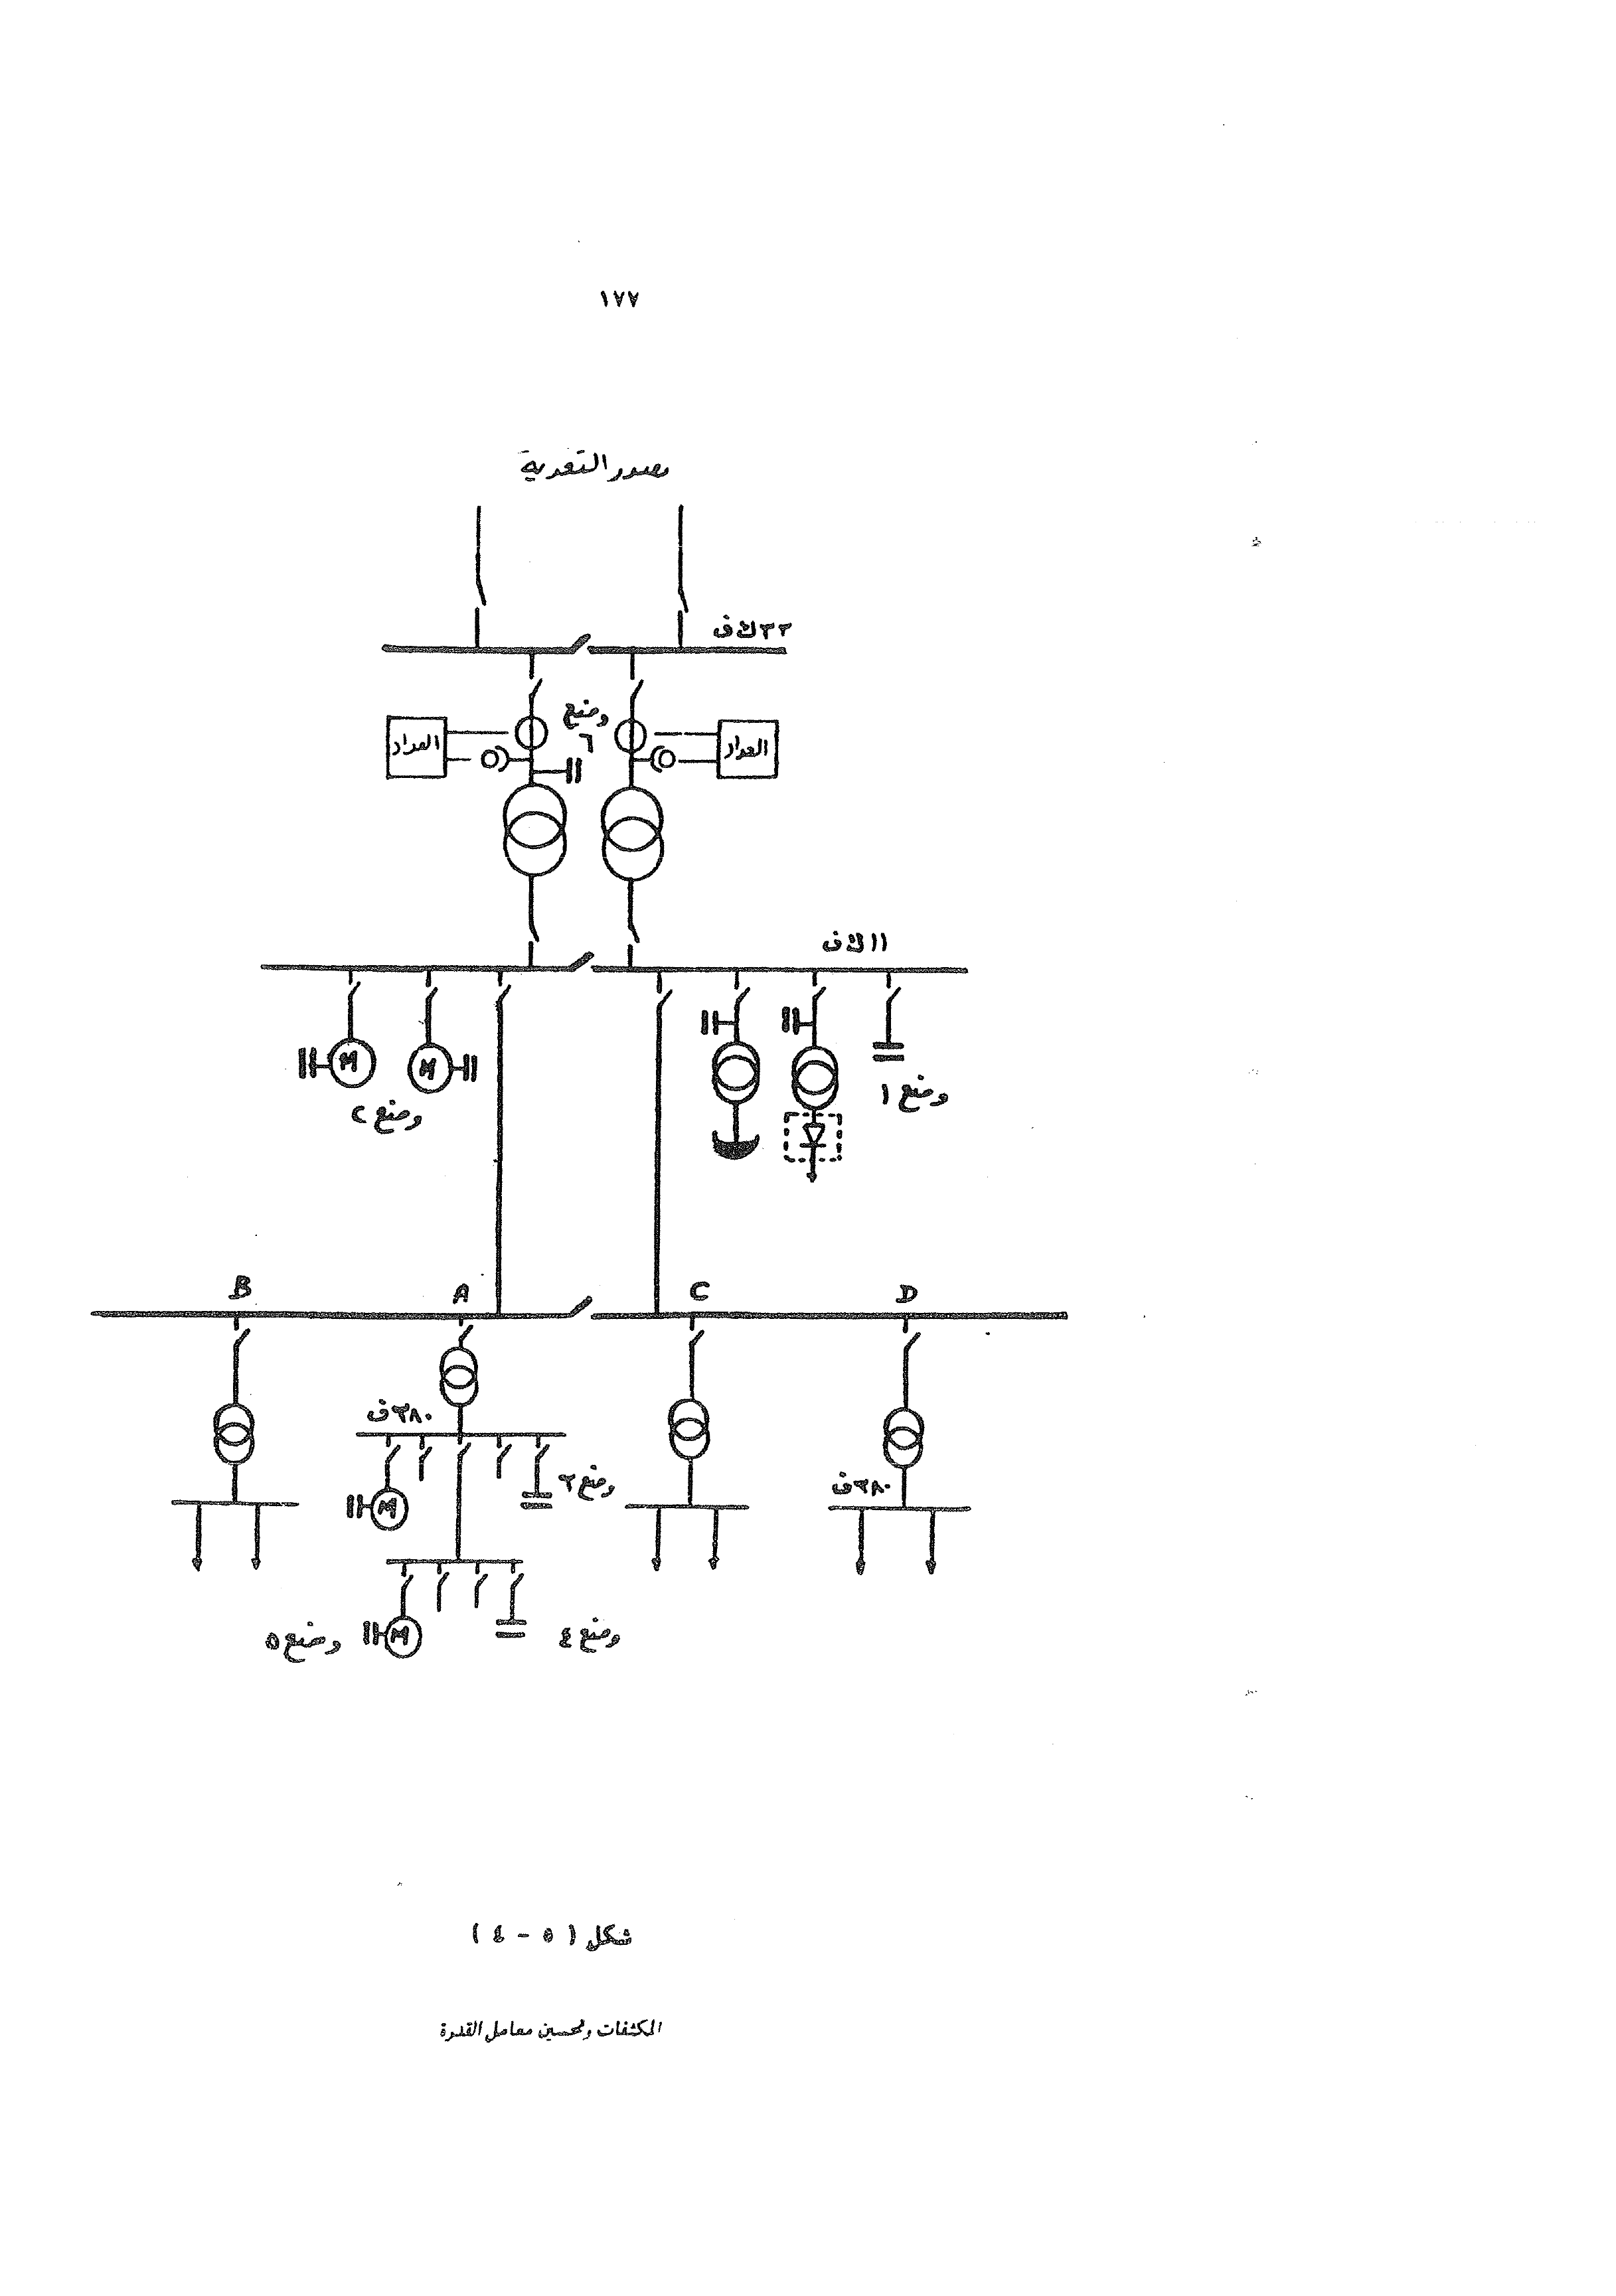 ١٧٧
مصدر التغذية
٣٣ ك ف
وضع ٦
العداد
العداد
١١ ك ف
وضع ١
وضع ٢
B
A
C
D
٣٨٠ ف
M
M
وضع ٣
٣٨٠ ف
M
وضع ٤
وضع ٥
M
شكل ( ٥ - ٤ )
المكثفات وتحسين معامل القدرة